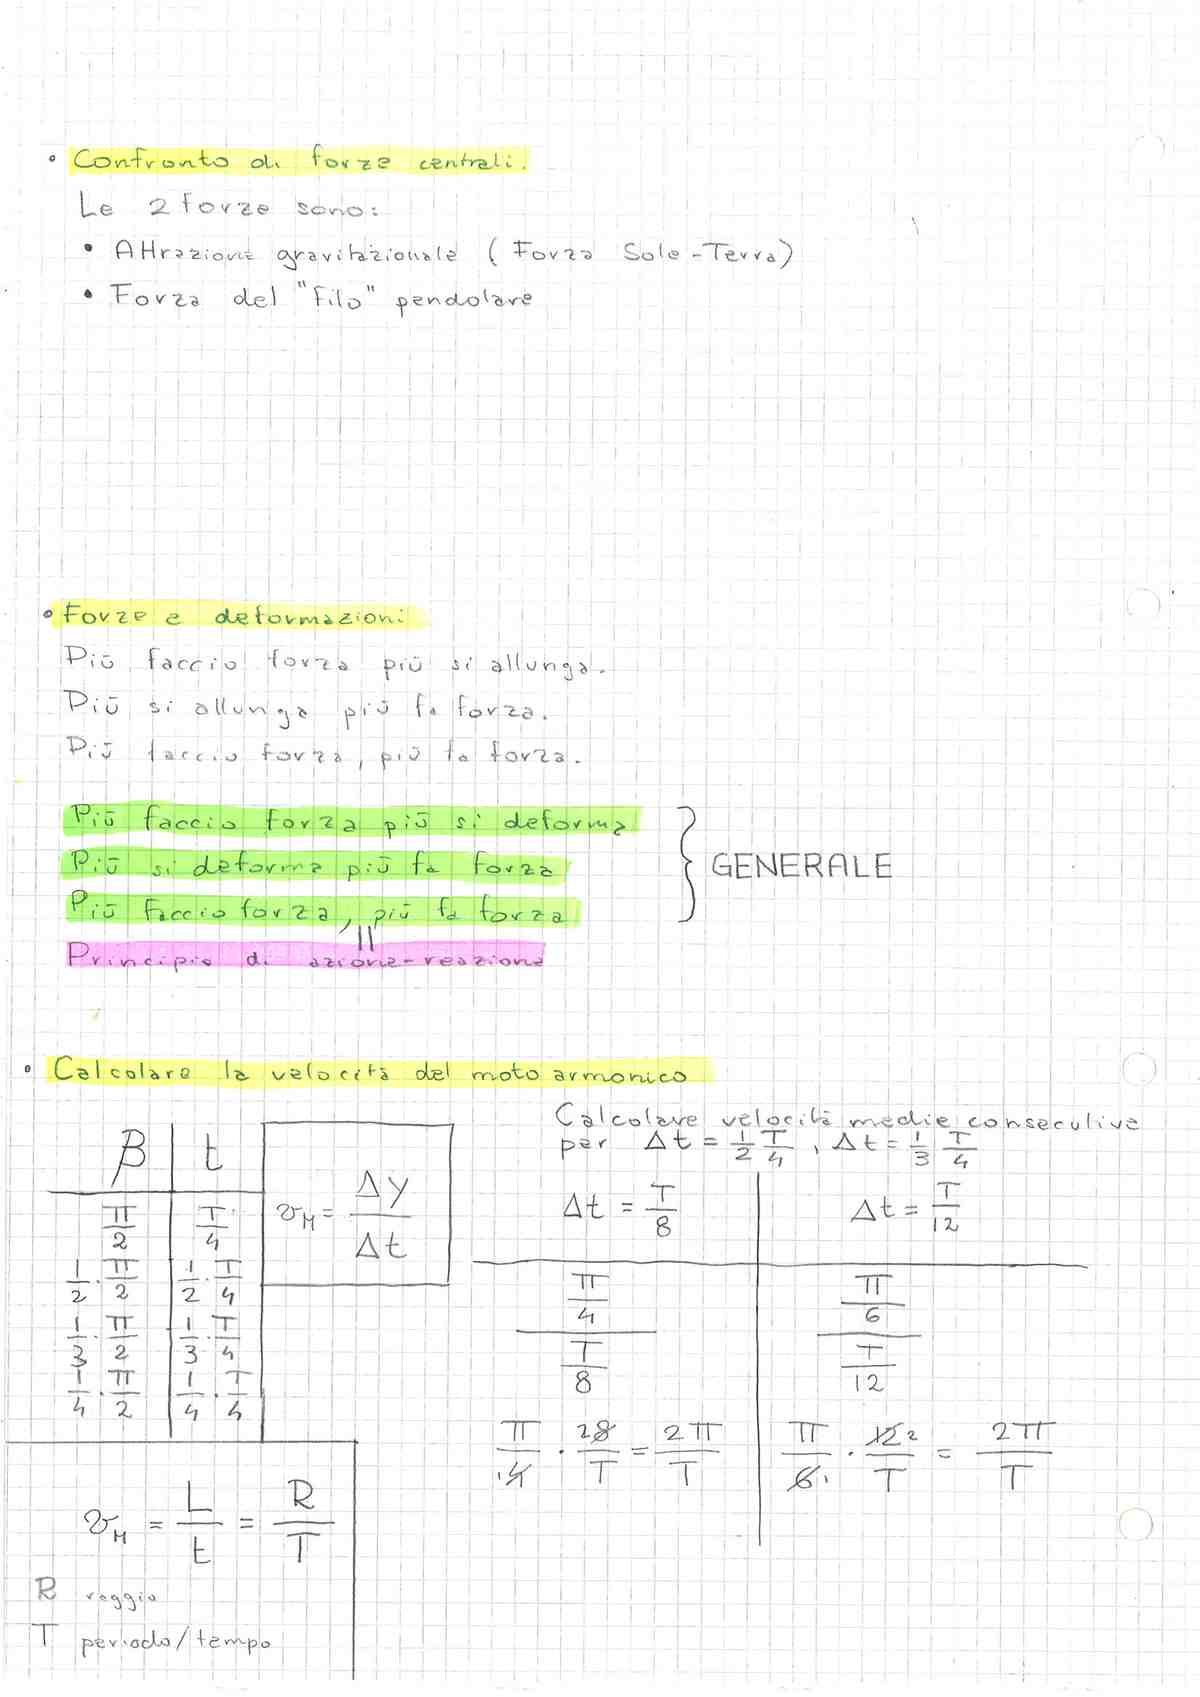 • Confronto di forze centrali.
Le 2 forze sono:
• Attrazione gravitazionale (Forza Sole-Terra)
• Forza del "filo" pendolare
• Forze e deformazioni
Più faccio forza più si allunga.
Più si allunga più fa forza.
Più faccio forza, più fa forza.
Più faccio forza più si deforma
Più si deforma più fa forza
Più faccio forza, più fa forza
} GENERALE
=
Principio di azione-reazione
• Calcolare la velocità del moto armonico
β | t
π/2 | T/4
1/2 · π/2 | 1/2 · T/4
1/3 · π/2 | 1/3 · T/4
1/4 · π/2 | 1/4 · T/4
v_M = Δy/Δt
Calcolare velocità medie consecutive
per Δt = 1/2 T/4, Δt = 1/3 T/4
Δt = T/8 | Δt = T/12
π/4 / T/8 | π/6 / T/12
π/4 · 28/T = 2π/T | π/6 · 12 2/T = 2π/T
v_M = L/t = R/T
R raggio
T periodo/tempo